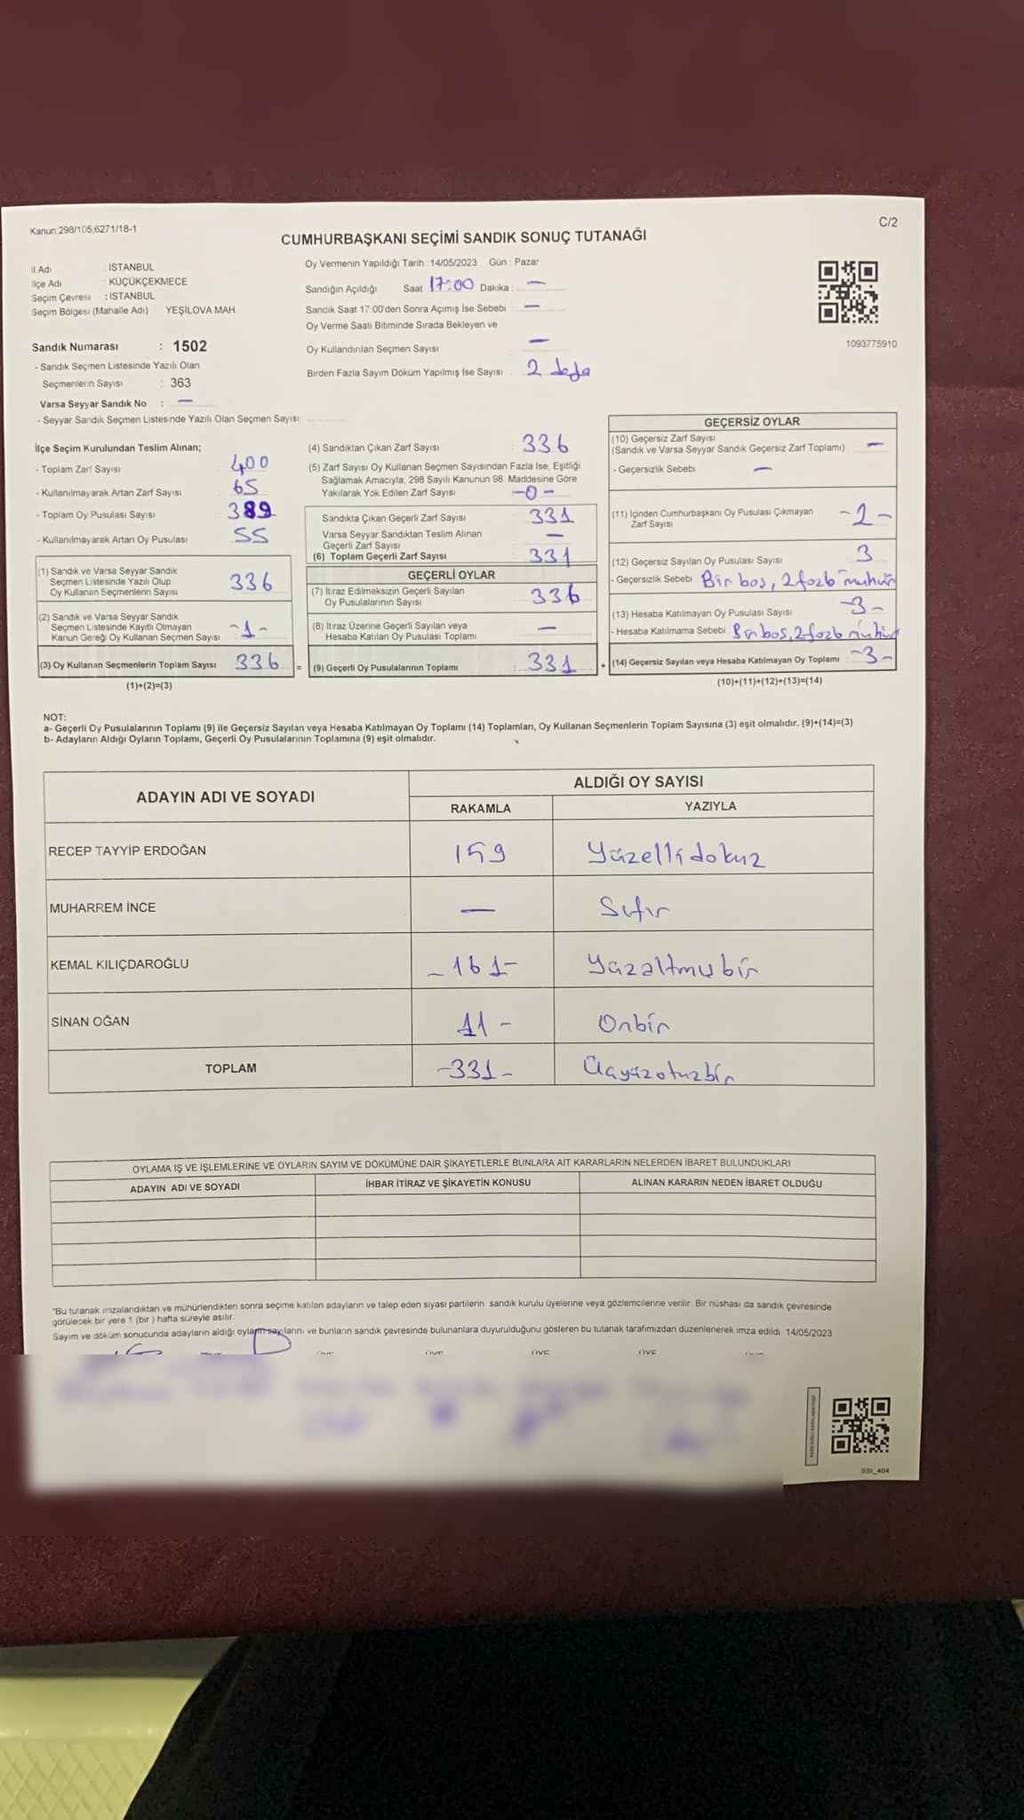 Kanun;298/105;6271/18-1
C/2
CUMHURBAŞKANI SEÇİMİ SANDIK SONUÇ TUTANAĞI
İl Adı : İSTANBUL
İlçe Adı : KÜÇÜKÇEKMECE
Seçim Çevresi : İSTANBUL
Seçim Bölgesi (Mahalle Adı) YEŞİLOVA MAH
Sandık Numarası : 1502
- Sandık Seçmen Listesinde Yazılı Olan
Seçmenlerin Sayısı : 363
Varsa Seyyar Sandık No : —
- Seyyar Sandık Seçmen Listesinde Yazılı Olan Seçmen Sayısı
Oy Vermenin Yapıldığı Tarih :14/05/2023 Gün : Pazar
Sandığın Açıldığı Saat 17:00 Dakika : —
Sandık Saat 17:00'den Sonra Açımış İse Sebebi —
Oy Verme Saati Bitiminde Sırada Bekleyen ve
Oy Kullandırılan Seçmen Sayısı —
Birden Fazla Sayım Döküm Yapılmış İse Sayısı 2 defa
1093775910
İlçe Seçim Kurulundan Teslim Alınan;
- Toplam Zarf Sayısı 400
- Kullanılmayarak Artan Zarf Sayısı 65
- Toplam Oy Pusulası Sayısı 389
- Kullanılmayarak Artan Oy Pusulası 55
(1) Sandık ve Varsa Seyyar Sandık
Seçmen Listesinde Yazılı Olup
Oy Kullanan Seçmenlerin Sayısı 336
(2) Sandık ve Varsa Seyyar Sandık
Seçmen Listesinde Kayıtlı Olmayan
Kanun Gereği Oy Kullanan Seçmen Sayısı -1-
(3) Oy Kullanan Seçmenlerin Toplam Sayısı 336 =
(1)+(2)=(3)
(4) Sandıktan Çıkan Zarf Sayısı 336
(5) Zarf Sayısı Oy Kullanan Seçmen Sayısından Fazla İse, Eşitliği
Sağlamak Amacıyla, 298 Sayılı Kanunun 98. Maddesine Göre
Yakılarak Yok Edilen Zarf Sayısı -0-
Sandıkta Çıkan Geçerli Zarf Sayısı 331
Varsa Seyyar Sandıktan Teslim Alınan
Geçerli Zarf Sayısı —
(6) Toplam Geçerli Zarf Sayısı 331
GEÇERLİ OYLAR
(7) İtiraz Edilmeksizin Geçerli Sayılan
Oy Pusulalarının Sayısı 336
(8) İtiraz Üzerine Geçerli Sayılan veya
Hesaba Katılan Oy Pusulası Toplamı —
(9) Geçerli Oy Pusulalarının Toplamı 331 +
GEÇERSİZ OYLAR
(10) Geçersiz Zarf Sayısı
(Sandık ve Varsa Seyyar Sandık Geçersiz Zarf Toplamı) —
- Geçersizlik Sebebi —
(11) İçinden Cumhurbaşkanı Oy Pusulası Çıkmayan
Zarf Sayısı -2-
(12) Geçersiz Sayılan Oy Pusulası Sayısı 3
- Geçersizlik Sebebi Bir boş, 2 fazla mühür
(13) Hesaba Katılmayan Oy Pusulası Sayısı -3-
- Hesaba Katılmama Sebebi Bir boş, 2 fazla mühür
(14) Geçersiz Sayılan veya Hesaba Katılmayan Oy Toplamı -3-
(10)+(11)+(12)+(13)=(14)
NOT:
a- Geçerli Oy Pusulalarının Toplamı (9) ile Geçersiz Sayılan veya Hesaba Katılmayan Oy Toplamı (14) Toplamları, Oy Kullanan Seçmenlerin Toplam Sayısına (3) eşit olmalıdır. (9)+(14)=(3)
b- Adayların Aldığı Oyların Toplamı, Geçerli Oy Pusulalarının Toplamına (9) eşit olmalıdır.
ADAYIN ADI VE SOYADI
ALDIĞI OY SAYISI
RAKAMLA YAZIYLA
RECEP TAYYİP ERDOĞAN 159 Yüzellidokuz
MUHARREM İNCE — Sıfır
KEMAL KILIÇDAROĞLU -161- Yüzaltmışbir
SİNAN OĞAN 11- Onbir
TOPLAM -331- Üçyüzotuzbir
OYLAMA İŞ VE İŞLEMLERİNE VE OYLARIN SAYIM VE DÖKÜMÜNE DAİR ŞİKAYETLERLE BUNLARA AİT KARARLARIN NELERDEN İBARET BULUNDUKLARI
ADAYIN ADI VE SOYADI İHBAR İTİRAZ VE ŞİKAYETİN KONUSU ALINAN KARARIN NEDEN İBARET OLDUĞU
*Bu tutanak imzalandıktan ve mühürlendikten sonra seçime katılan adayların ve talep eden siyasi partilerin sandık kurulu üyelerine veya gözlemcilerine verilir. Bir nüshası da sandık çevresinde
görülecek bir yere 1 (bir) hafta süreyle asılır.
Sayım ve döküm sonucunda adayların aldığı oyların sayılarını ve bunların sandık çevresinde bulunanlara duyurulduğunu gösteren bu tutanak tarafımızdan düzenlenerek imza edildi. 14/05/2023